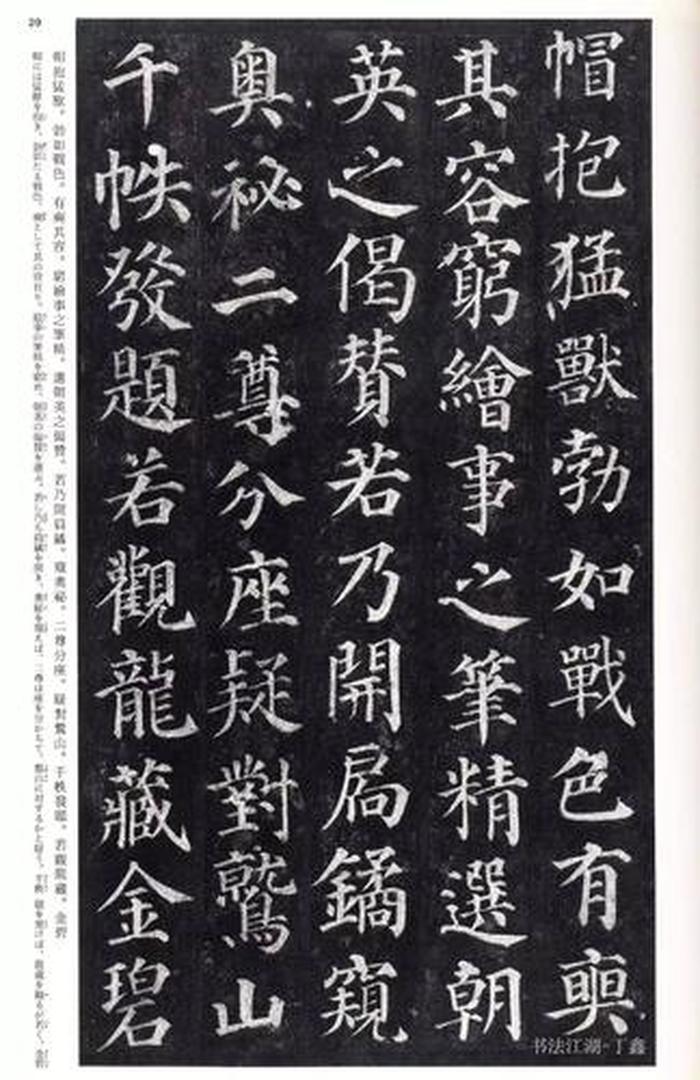 20
帽抱猛獸勃如戰色有奭
其容窮繪事之筆精選朝
英之偈贊若乃開扃鐍窺
奧祕二尊分座疑對鷲山
千帙發題若觀龍藏金碧
帽抱猛獸。勃如戰色。有奭其容。窮繪事之筆精。選朝英之偈贊。若乃開扃鐍。窺奧祕。二尊分座。疑對鷲山。千帙發題。若觀龍藏。金碧
书法江湖-丁鑫